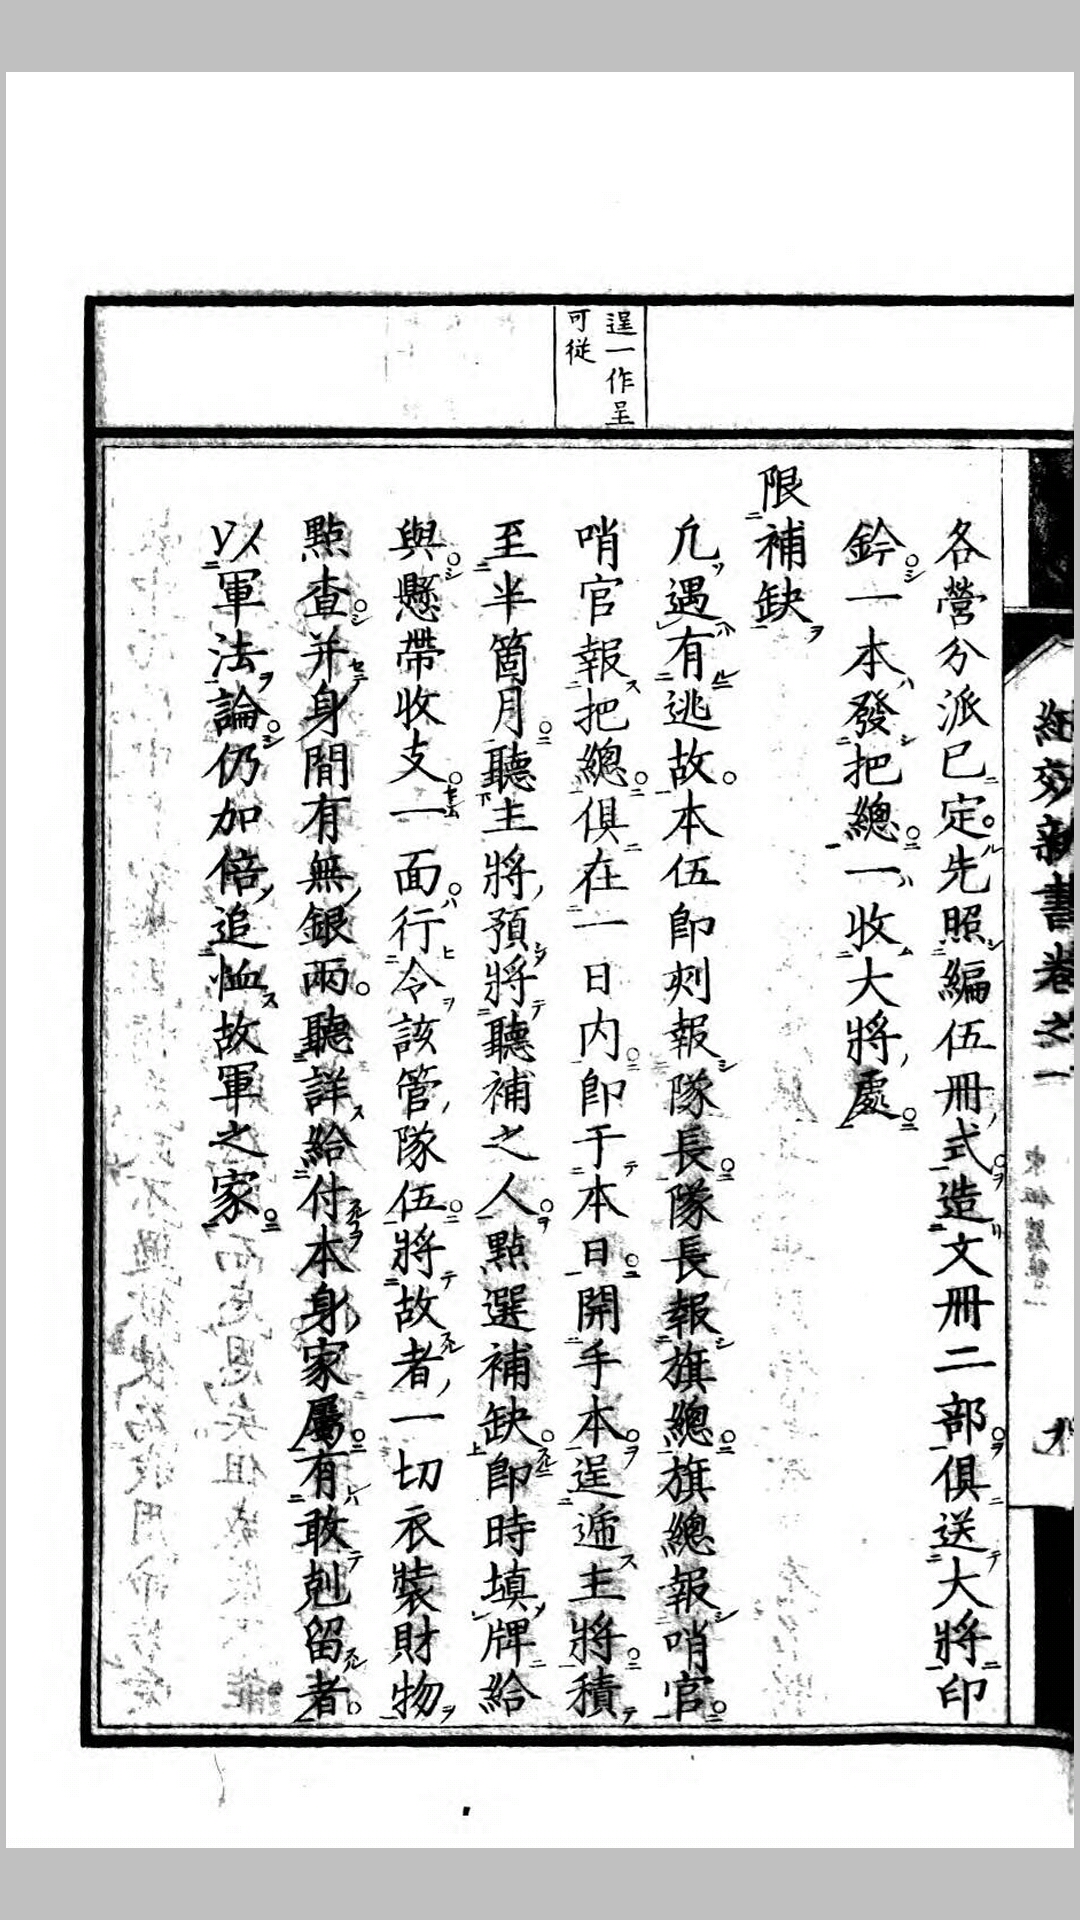 紀效新書卷之一
逞一作呈
可從
各營分派已定先照編伍冊式造文冊二部俱送大將印
鈐一本發把總一收大將處
限補缺
凡遇有逃故本伍即刻報隊長隊長報旗總旗總報哨官
哨官報把總俱在一日内即于本日開手本逞遞主將積
至半箇月聽主將預將聽補之人點選補缺即時填牌給
與懸帶收支一面行令該管隊伍將故者一切衣裝財物
點查并身間有無銀兩聽詳給付本身家屬有敢剋留者
以軍法論仍加倍追恤故軍之家